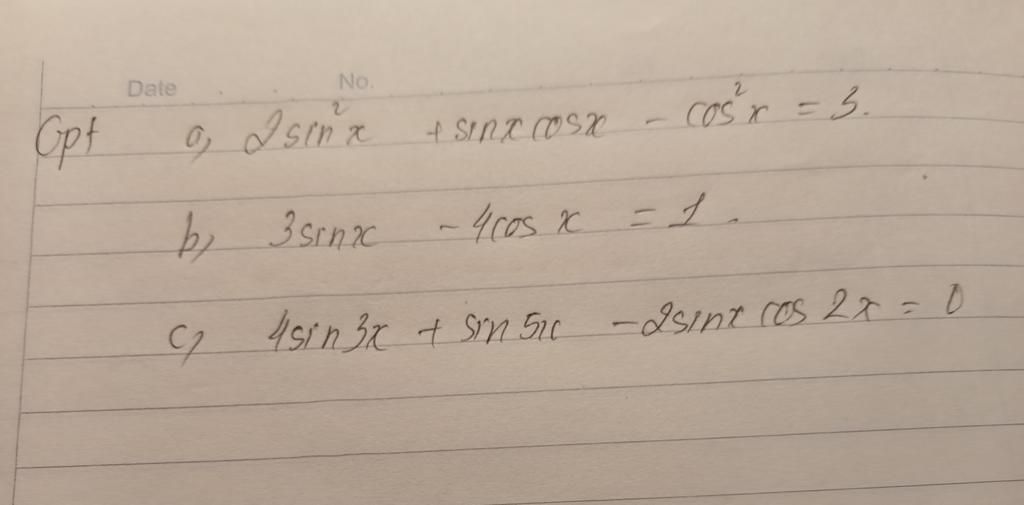 Date No.
Gpt a, 2sin²x + sinx cosx - cos²x = 3.
b, 3sinx - 4cos x = 1.
c, 4sin3x + sin 5x - 2sinx cos 2x = 0